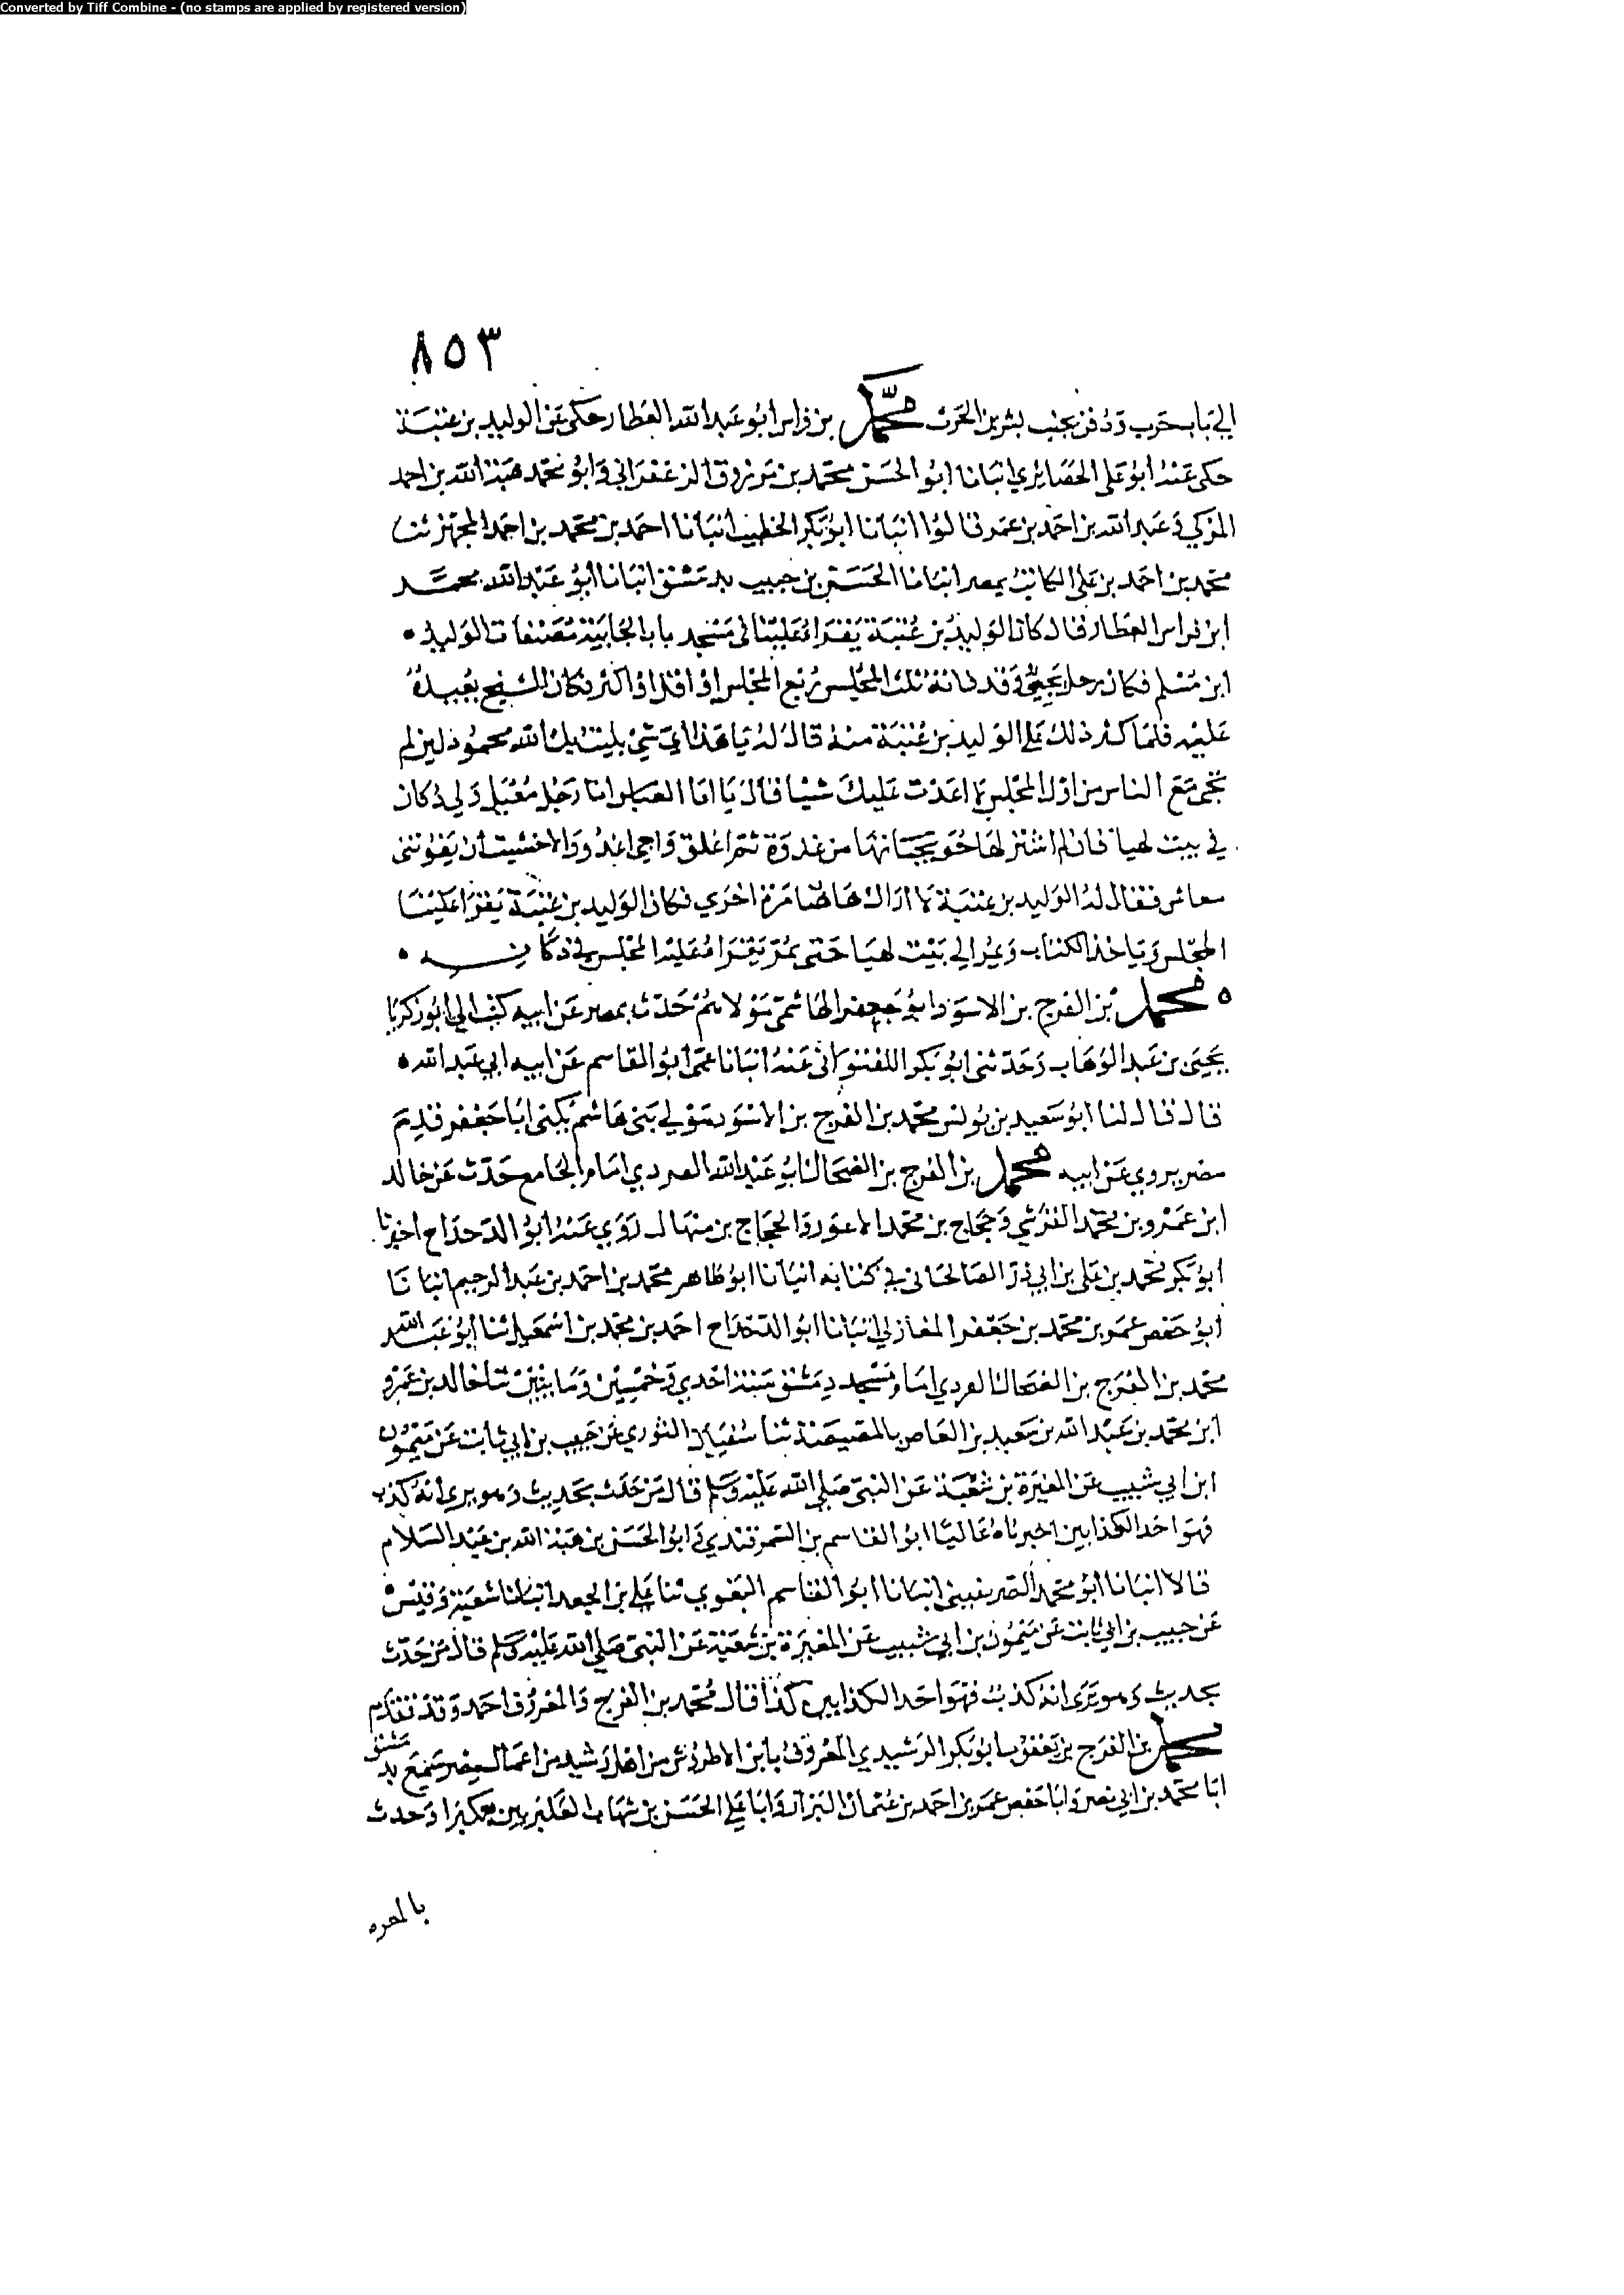 Converted by Tiff Combine - (no stamps are applied by registered version)
٨٥٣
الى باب حرب ودفن بجنب بشر بن الحرث محمد بن فراس ابو عبد الله العطار حكى عن الوليد بن عتبة
حكى عنه ابو على الحصائري انبانا ابو الحسن محمد بن مرزوق الزعفراني وابو محمد هبة الله بن احمد
المزكي وعبد الله بن احمد بن عمر قالوا انبانا ابو بكر الخطيب انبانا احمد بن محمد بن احمد المجهز ثنا
محمد بن احمد بن على الكاتب بمصر انبانا الحسن بن حبيب بدمشق انبانا ابو عبد الله محمد
ابن فراس العطار قال كان الوليد بن عتبة يقرا علينا في مسجد باب الجابية مصنفات الوليد
ابن مسلم فكان رجل يجيئ وقد فاته ثلث المجلس ربع المجلس او اقل او اكثر فكان الشيخ يعيده
عليه فلما كثر ذلك على الوليد بن عتبة منه قال له يا هذا اي شئ بليت بك الله محمود لئن لم
تجئ مع الناس من اول المجلس لا اعدت عليك شيا قال يا ابا العباس انا رجل معيل ولي دكان
في بيت لهيا فان لم اشتر لها حويجاتها من غدوة ثم اغلق واجي اعدو والا خشيت ان يفوتني
معاش فقال له الوليد بن عتبة لا اراك هاهنا مرة اخرى فكان الوليد بن عتبة يقرا علينا
المجلس وياخذ الكتاب ويمر الى بيت لهيا حتى يمر يقرا عليه المجلس في دكانه
محمد بن الفرج بن الاسود ابو جعفر الهاشمي مولاهم حدث بمصر عن ابيه كتب الي ابو زكريا
يحيى بن عبد الوهاب وحدثني ابو بكر اللفتواني عنه انبانا عمي ابو القاسم عن ابيه ابي عبد الله
قال قال لنا ابو سعيد بن يونس محمد بن الفرج بن الاسود مولى بني هاشم يكنى ابا جعفر قدم
مصر يروي عن ابيه محمد بن الفرج بن الضحاك ابو عبد الله امام الجامع حدث عن خالد
ابن عمرو بن محمد القرشي وحجاج بن محمد الاعور والحجاج بن منهال روى عنه ابو الدحداح اخبرنا
ابو بكر محمد بن على بن ابي ذر الصالحاني في كتابه انبانا ابو طاهر محمد بن احمد بن عبد الرحيم انبانا
ابو حفص عمر بن محمد بن جعفر المغازلي انبانا ابو الدحداح احمد بن محمد بن اسمعيل ثنا ابو عبد الله
محمد بن الفرج بن الضحاك امام مسجد دمشق سنة احدى وخمسين ومايتين ثنا خالد بن عمرو
ابن محمد بن عبد الله بن سعيد بن العاص بالمصيصة ثنا سفيان الثوري عن حبيب بن ابي ثابت عن ميمون
ابن ابي شبيب عن المغيرة بن شعبة عن النبي صلى الله عليه وسلم قال من حدث بحديث وهو يرى انه كذب
فهو احد الكذابين اخبرناه عاليا ابو القاسم بن السمرقندي وابو الحسن بن هبة الله بن عبد السلام
قالا انبانا ابو محمد الصريفيني انبانا ابو القاسم البغوي ثنا على بن الجعد انبانا شعبة وقيس
عن حبيب بن ابي ثابت عن ميمون بن ابي شبيب عن المغيرة بن شعبة عن النبي صلى الله عليه وسلم قال من حدث
بحديث وهو يرى انه كذب فهو احد الكذابين كذا قال محمد بن الفرج والمعروف احمد وقد تقدم
محمد بن الفرج بن يعقوب ابو بكر الرشيدي المعروف بابن الاطروش من اهل رشيد من اعمال مصر سمع بدمشق
ابا محمد بن ابي نصر وابا حفص عمر بن احمد بن عثمان البزاز وابا على الحسن بن شهاب العكبريين بعكبرا وحدث
بالمعره